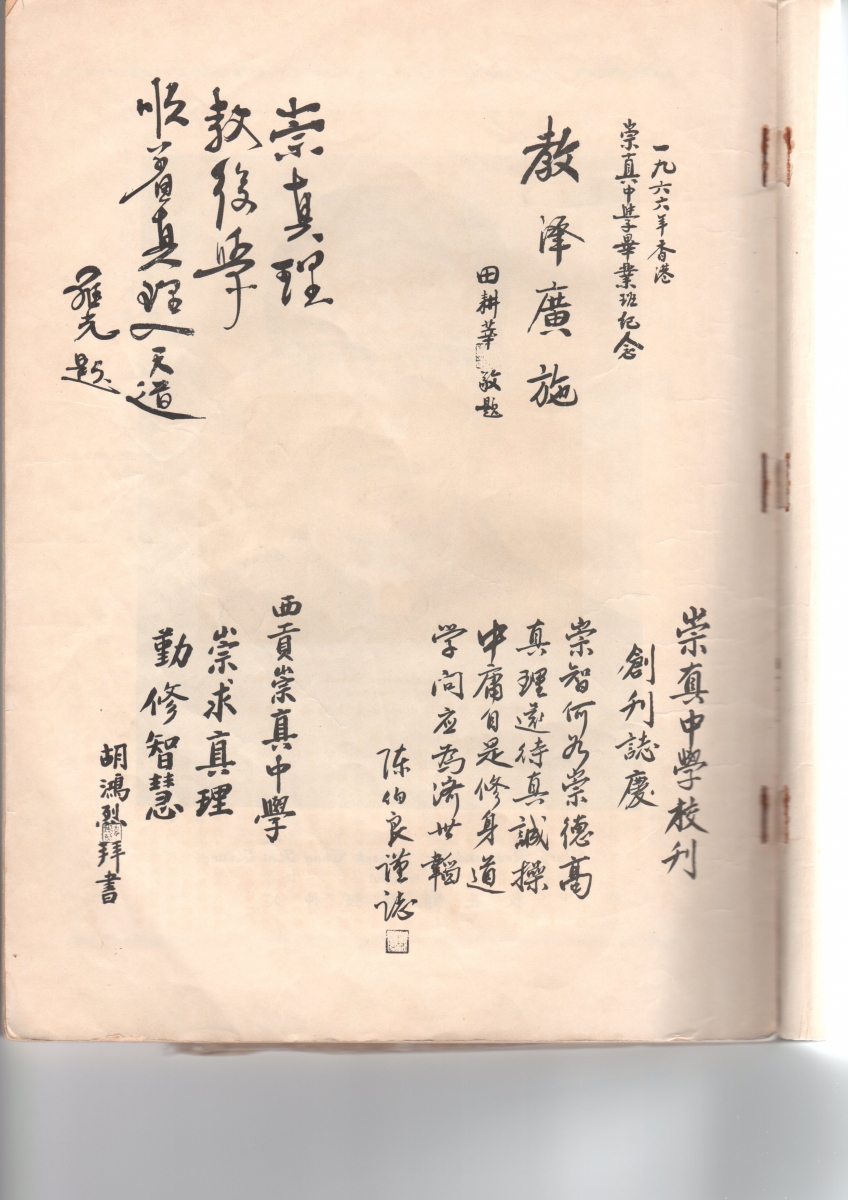 一九六六年香港
崇真中學畢業班紀念
教澤廣施
田耕莘敬題
崇真理
教後學
順着真理入天道
雍光題
崇真中學校刊
創刊誌慶
崇智何如崇德高
真理還待真誠操
中庸自是修身道
学问应為济世韜
陈伯良谨誌
西貢崇真中學
崇求真理
勤修智慧
胡鴻烈拜書